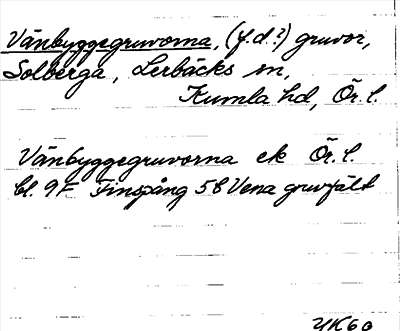 Vänbyggegruvorna, (f.d.?) gruvor,
Solberga, Lerbäcks sn,
Kumla hd, Ör. l.
Vänbyggegruvorna ek Ör. l.
bl. 9F Finspång 5b Vena gruvfält
UK60